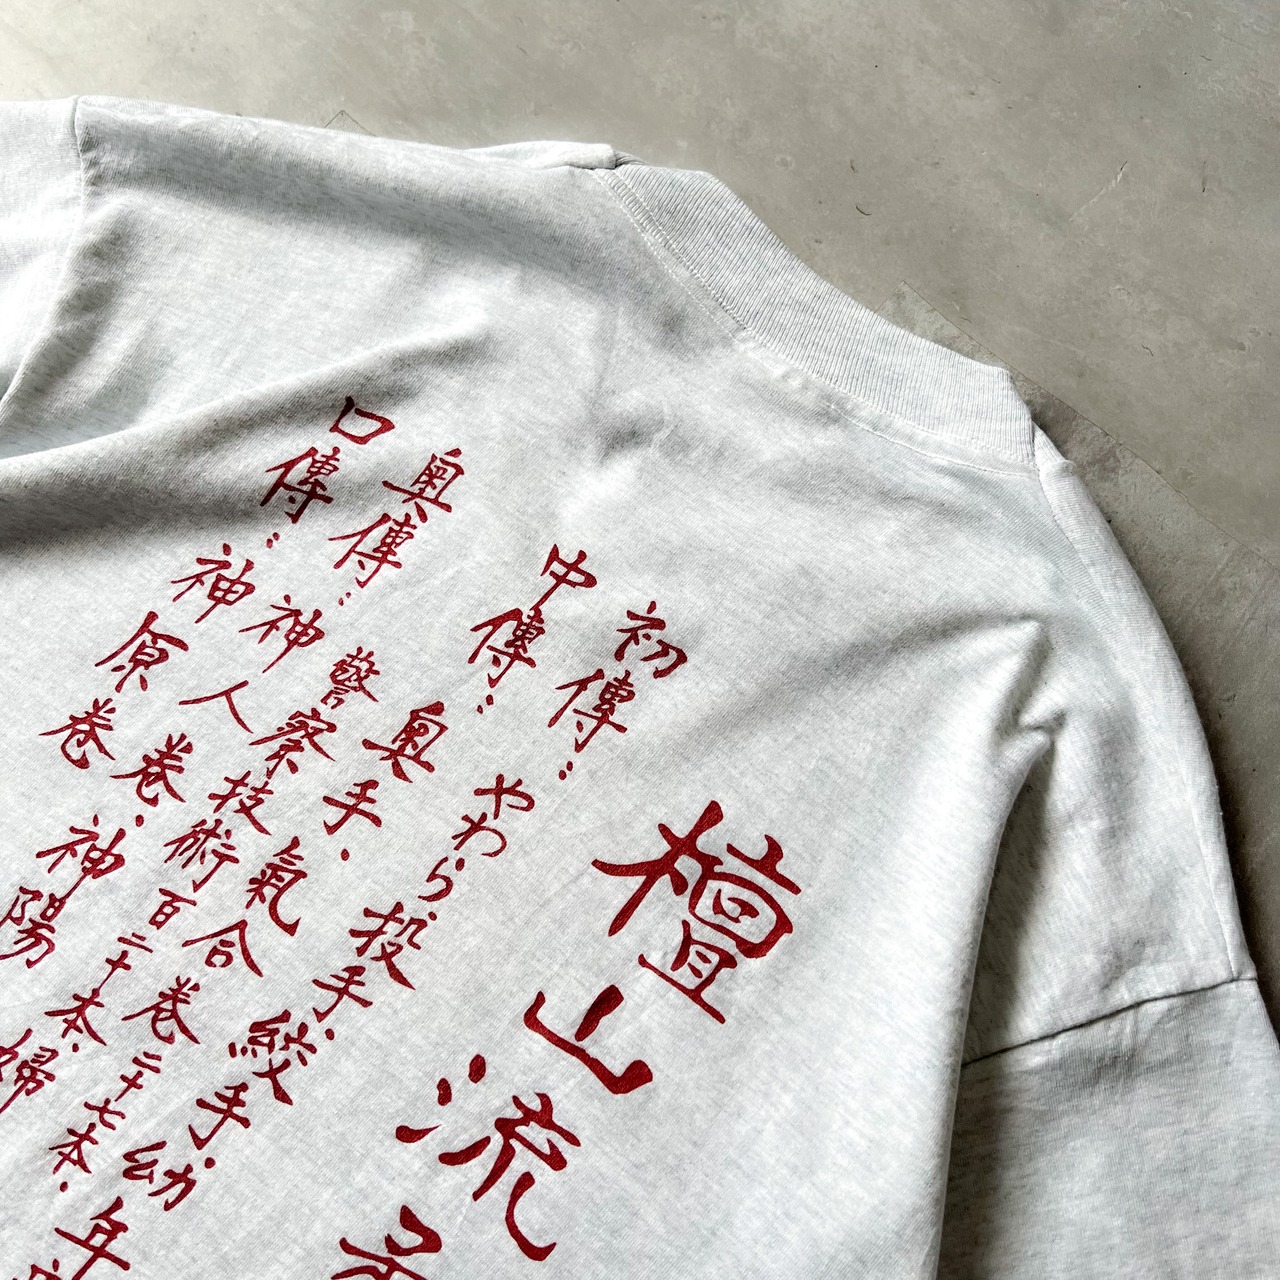 檀山流柔
初傳：やわら投手、
中傳：奥手、絞手、幼年
警察技術百二十本、
奥傳：神人巻、氣合巻二十七本、
口傳：神原巻、神陽
婦